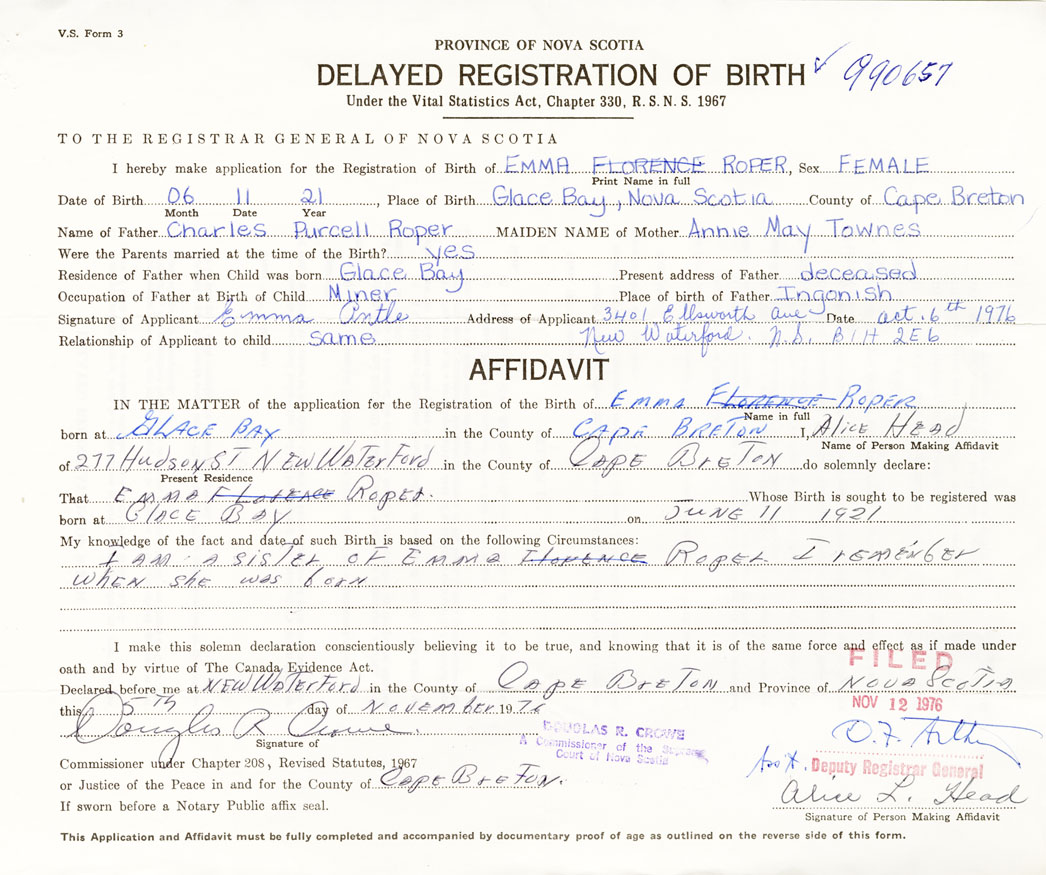 V.S. Form 3
PROVINCE OF NOVA SCOTIA
DELAYED REGISTRATION OF BIRTH ✓ 990657
Under the Vital Statistics Act, Chapter 330, R.S.N.S. 1967
TO THE REGISTRAR GENERAL OF NOVA SCOTIA
I hereby make application for the Registration of Birth of EMMA FLORENCE ROPER, Sex FEMALE
Print Name in full
Date of Birth 06 11 21, Place of Birth Glace Bay, Nova Scotia County of Cape Breton
Month Date Year
Name of Father Charles Purcell Roper MAIDEN NAME of Mother Annie May Townes
Were the Parents married at the time of the Birth? yes
Residence of Father when Child was born Glace Bay Present address of Father deceased
Occupation of Father at Birth of Child Miner Place of birth of Father Ingonish
Signature of Applicant Emma Antle Address of Applicant 3401 Ellsworth ave Date oct. 6th 1976
Relationship of Applicant to child same New Waterford. N.S. B1H 2E6
AFFIDAVIT
IN THE MATTER of the application for the Registration of the Birth of Emma FLORENCE ROPER
Name in full
born at GLACE BAY in the County of CAPE BRETON I, ALICE HEAD
Name of Person Making Affidavit
of 277 Hudson ST NEW WATERFORD in the County of CAPE BRETON do solemnly declare:
Present Residence
That EMMA FLORENCE ROPER. Whose Birth is sought to be registered was
born at GLACE BAY on JUNE 11 1921
My knowledge of the fact and date of such Birth is based on the following Circumstances:
I AM A SISTER OF EMMA FLORENCE ROPER I remember
when she was born
I make this solemn declaration conscientiously believing it to be true, and knowing that it is of the same force and effect as if made under
oath and by virtue of The Canada Evidence Act.
FILED
Declared before me at NEW WATERFORD in the County of CAPE BRETON and Province of NOVA SCOTIA
this 5TH day of NOVEMBER 1976
NOV 12 1976
Douglas R Crowe.
DOUGLAS R. CROWE
A Commissioner of the Supreme
Court of Nova Scotia
Signature of
Commissioner under Chapter 208, Revised Statutes, 1967
Ass't. Deputy Registrar General
or Justice of the Peace in and for the County of CAPE BRETON.
Alice L. Head
If sworn before a Notary Public affix seal.
Signature of Person Making Affidavit
This Application and Affidavit must be fully completed and accompanied by documentary proof of age as outlined on the reverse side of this form.